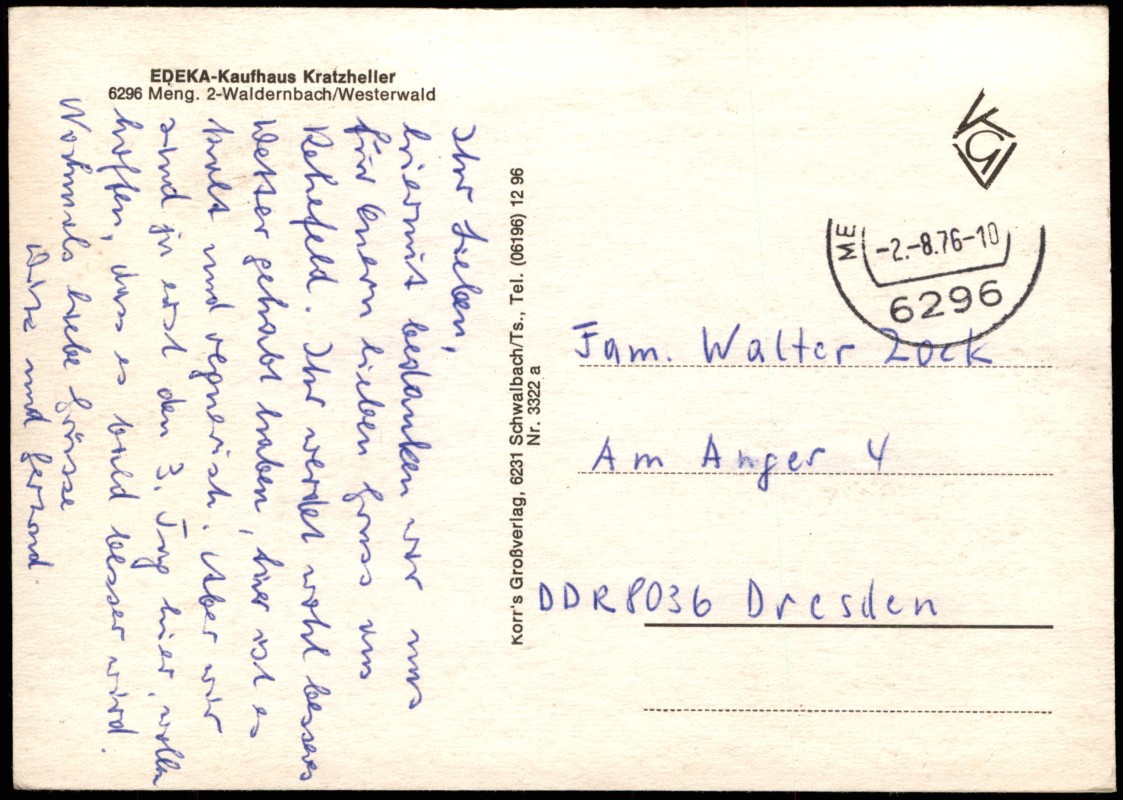 EDEKA-Kaufhaus Kratzheller
6296 Meng. 2-Waldernbach/Westerwald
Ihr Lieben,
hiermit bedanken wir uns
für Euern lieben Gruss aus
Rehefeld. Ihr werdet wohl besseres
Wetter gehabt haben, hier ist es
kalt und regnerisch. Aber wir
sind ja erst den 3. Tag hier, wollen
hoffen, dass es bald besser wird.
Nochmals liebe Grüsse
und
Korr's Großverlag, 6231 Schwalbach/Ts., Tel. (06196) 12 96
Nr. 3322 a
KG
ME
-2.-8.76-10
6296
Fam. Walter Zock
Am Anger 4
DDR 8036 Dresden